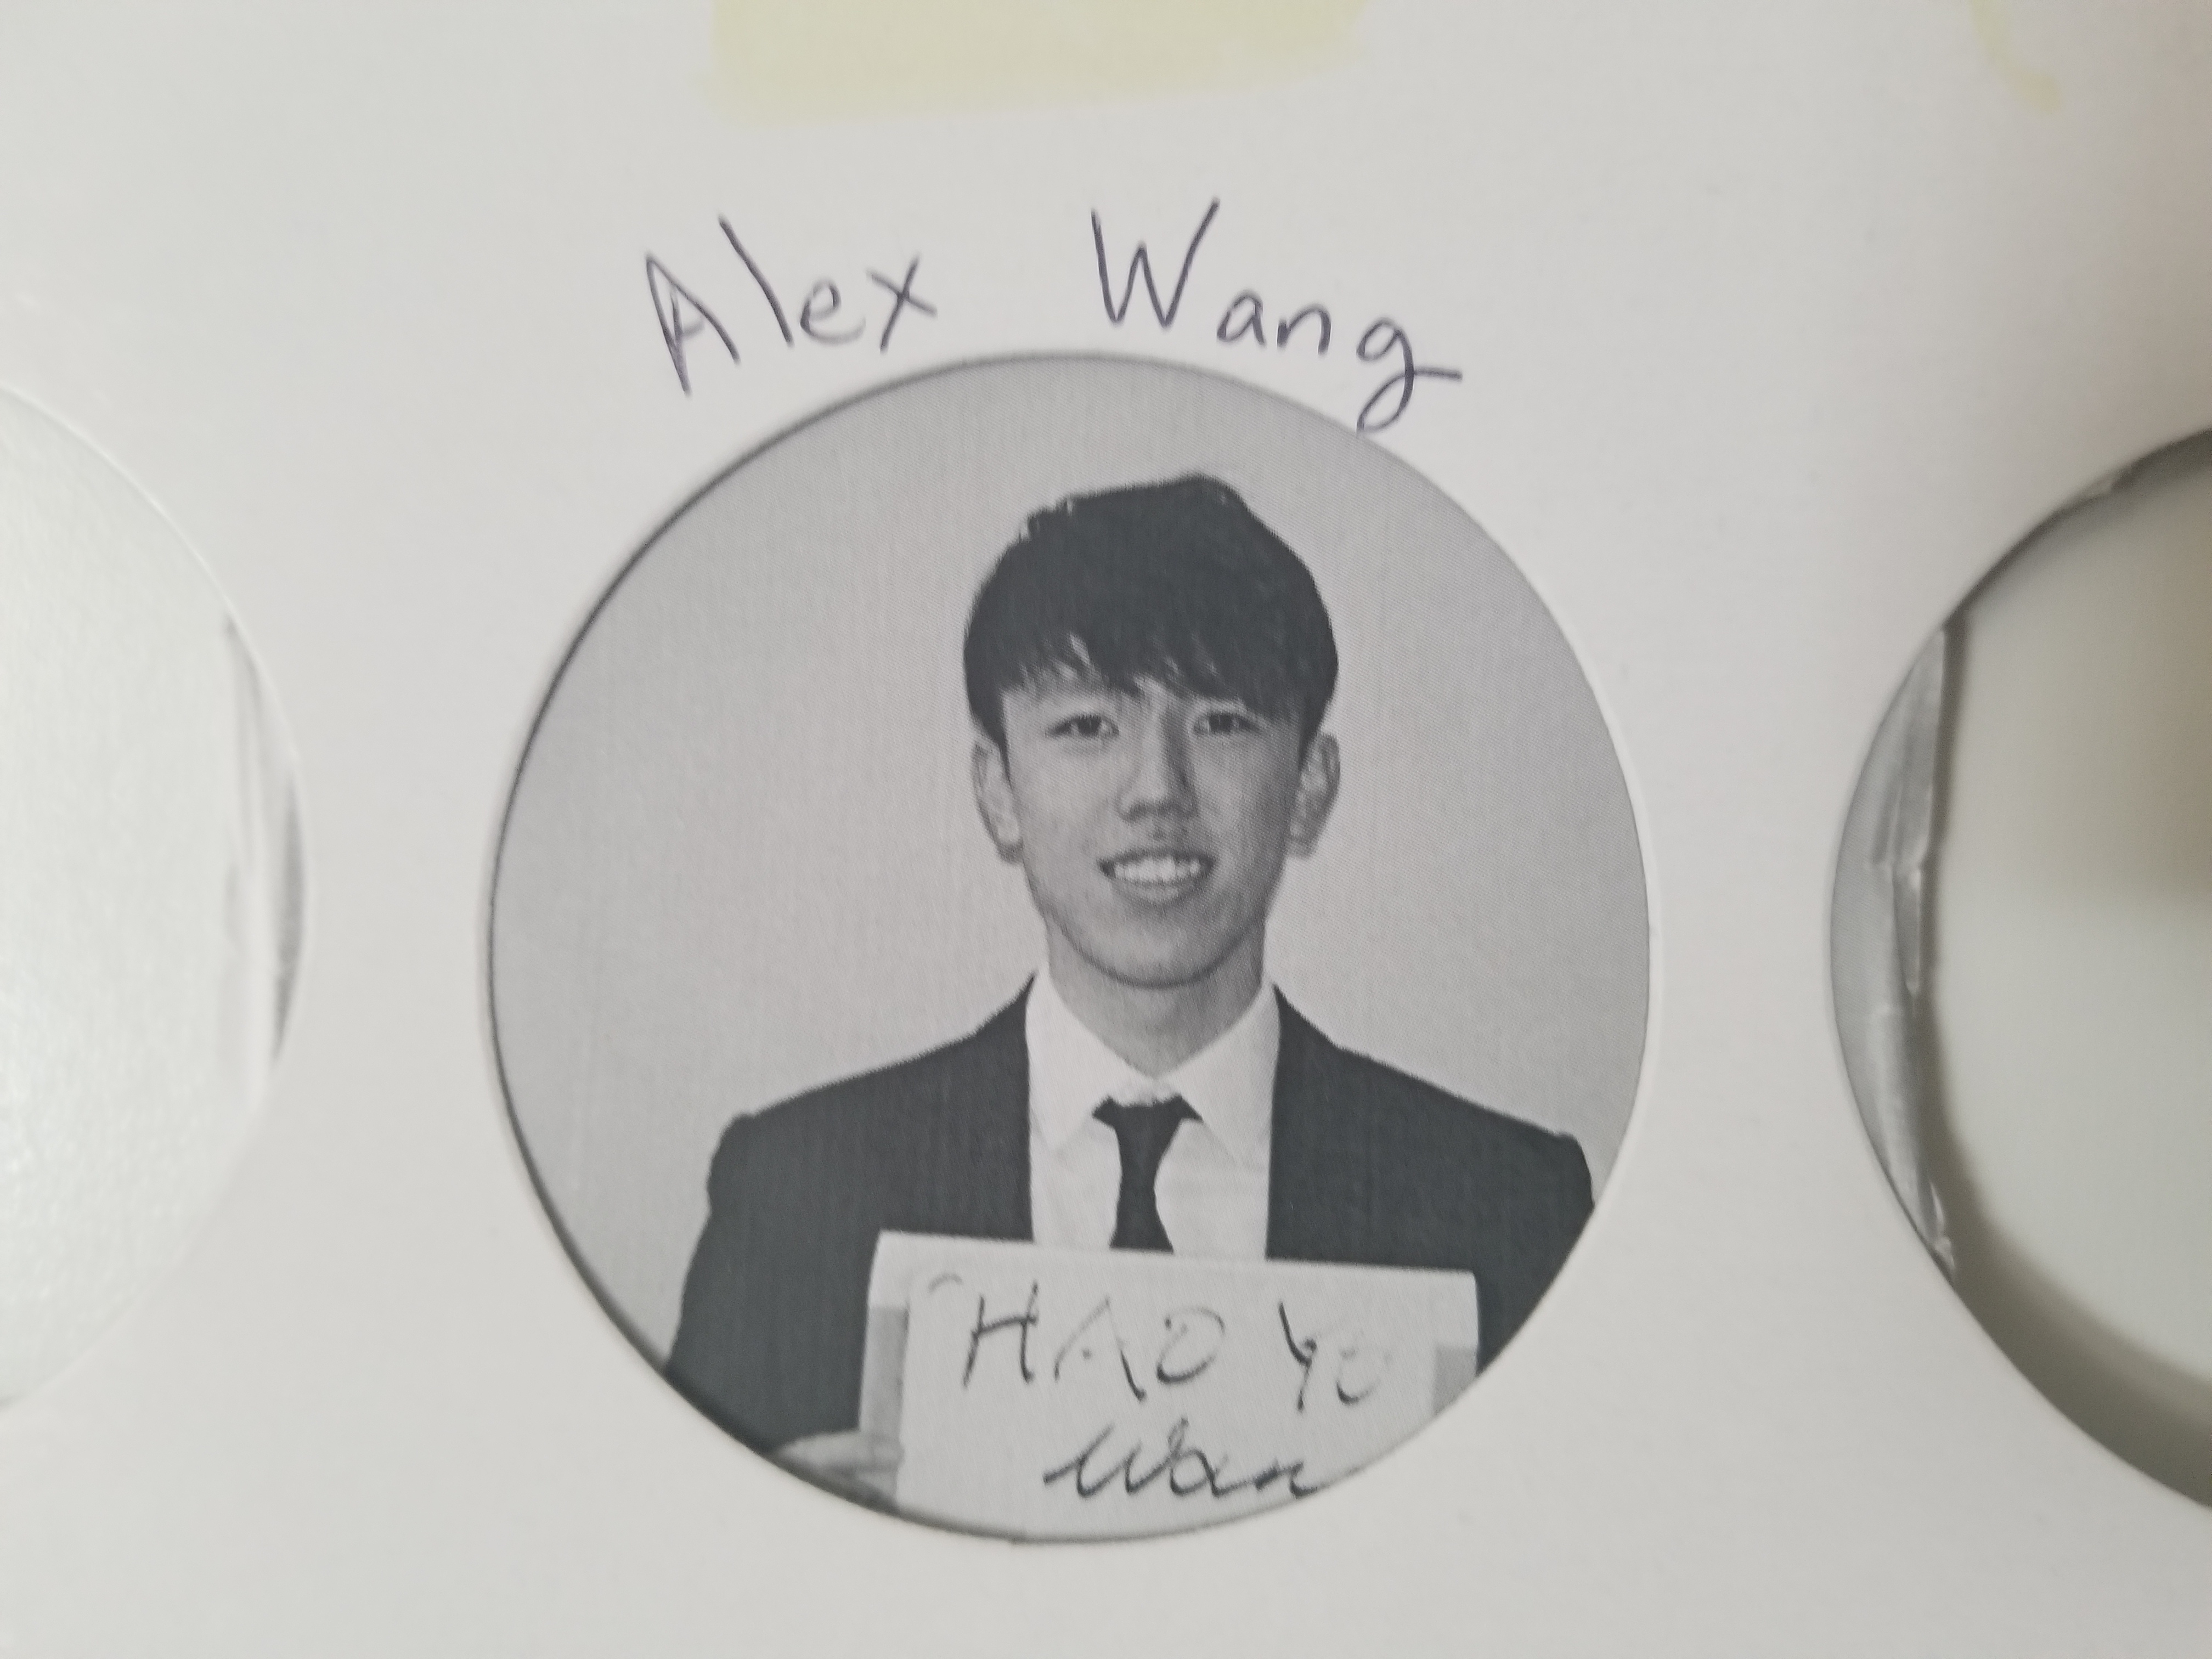 Alex Wang
HAO YU
Wan